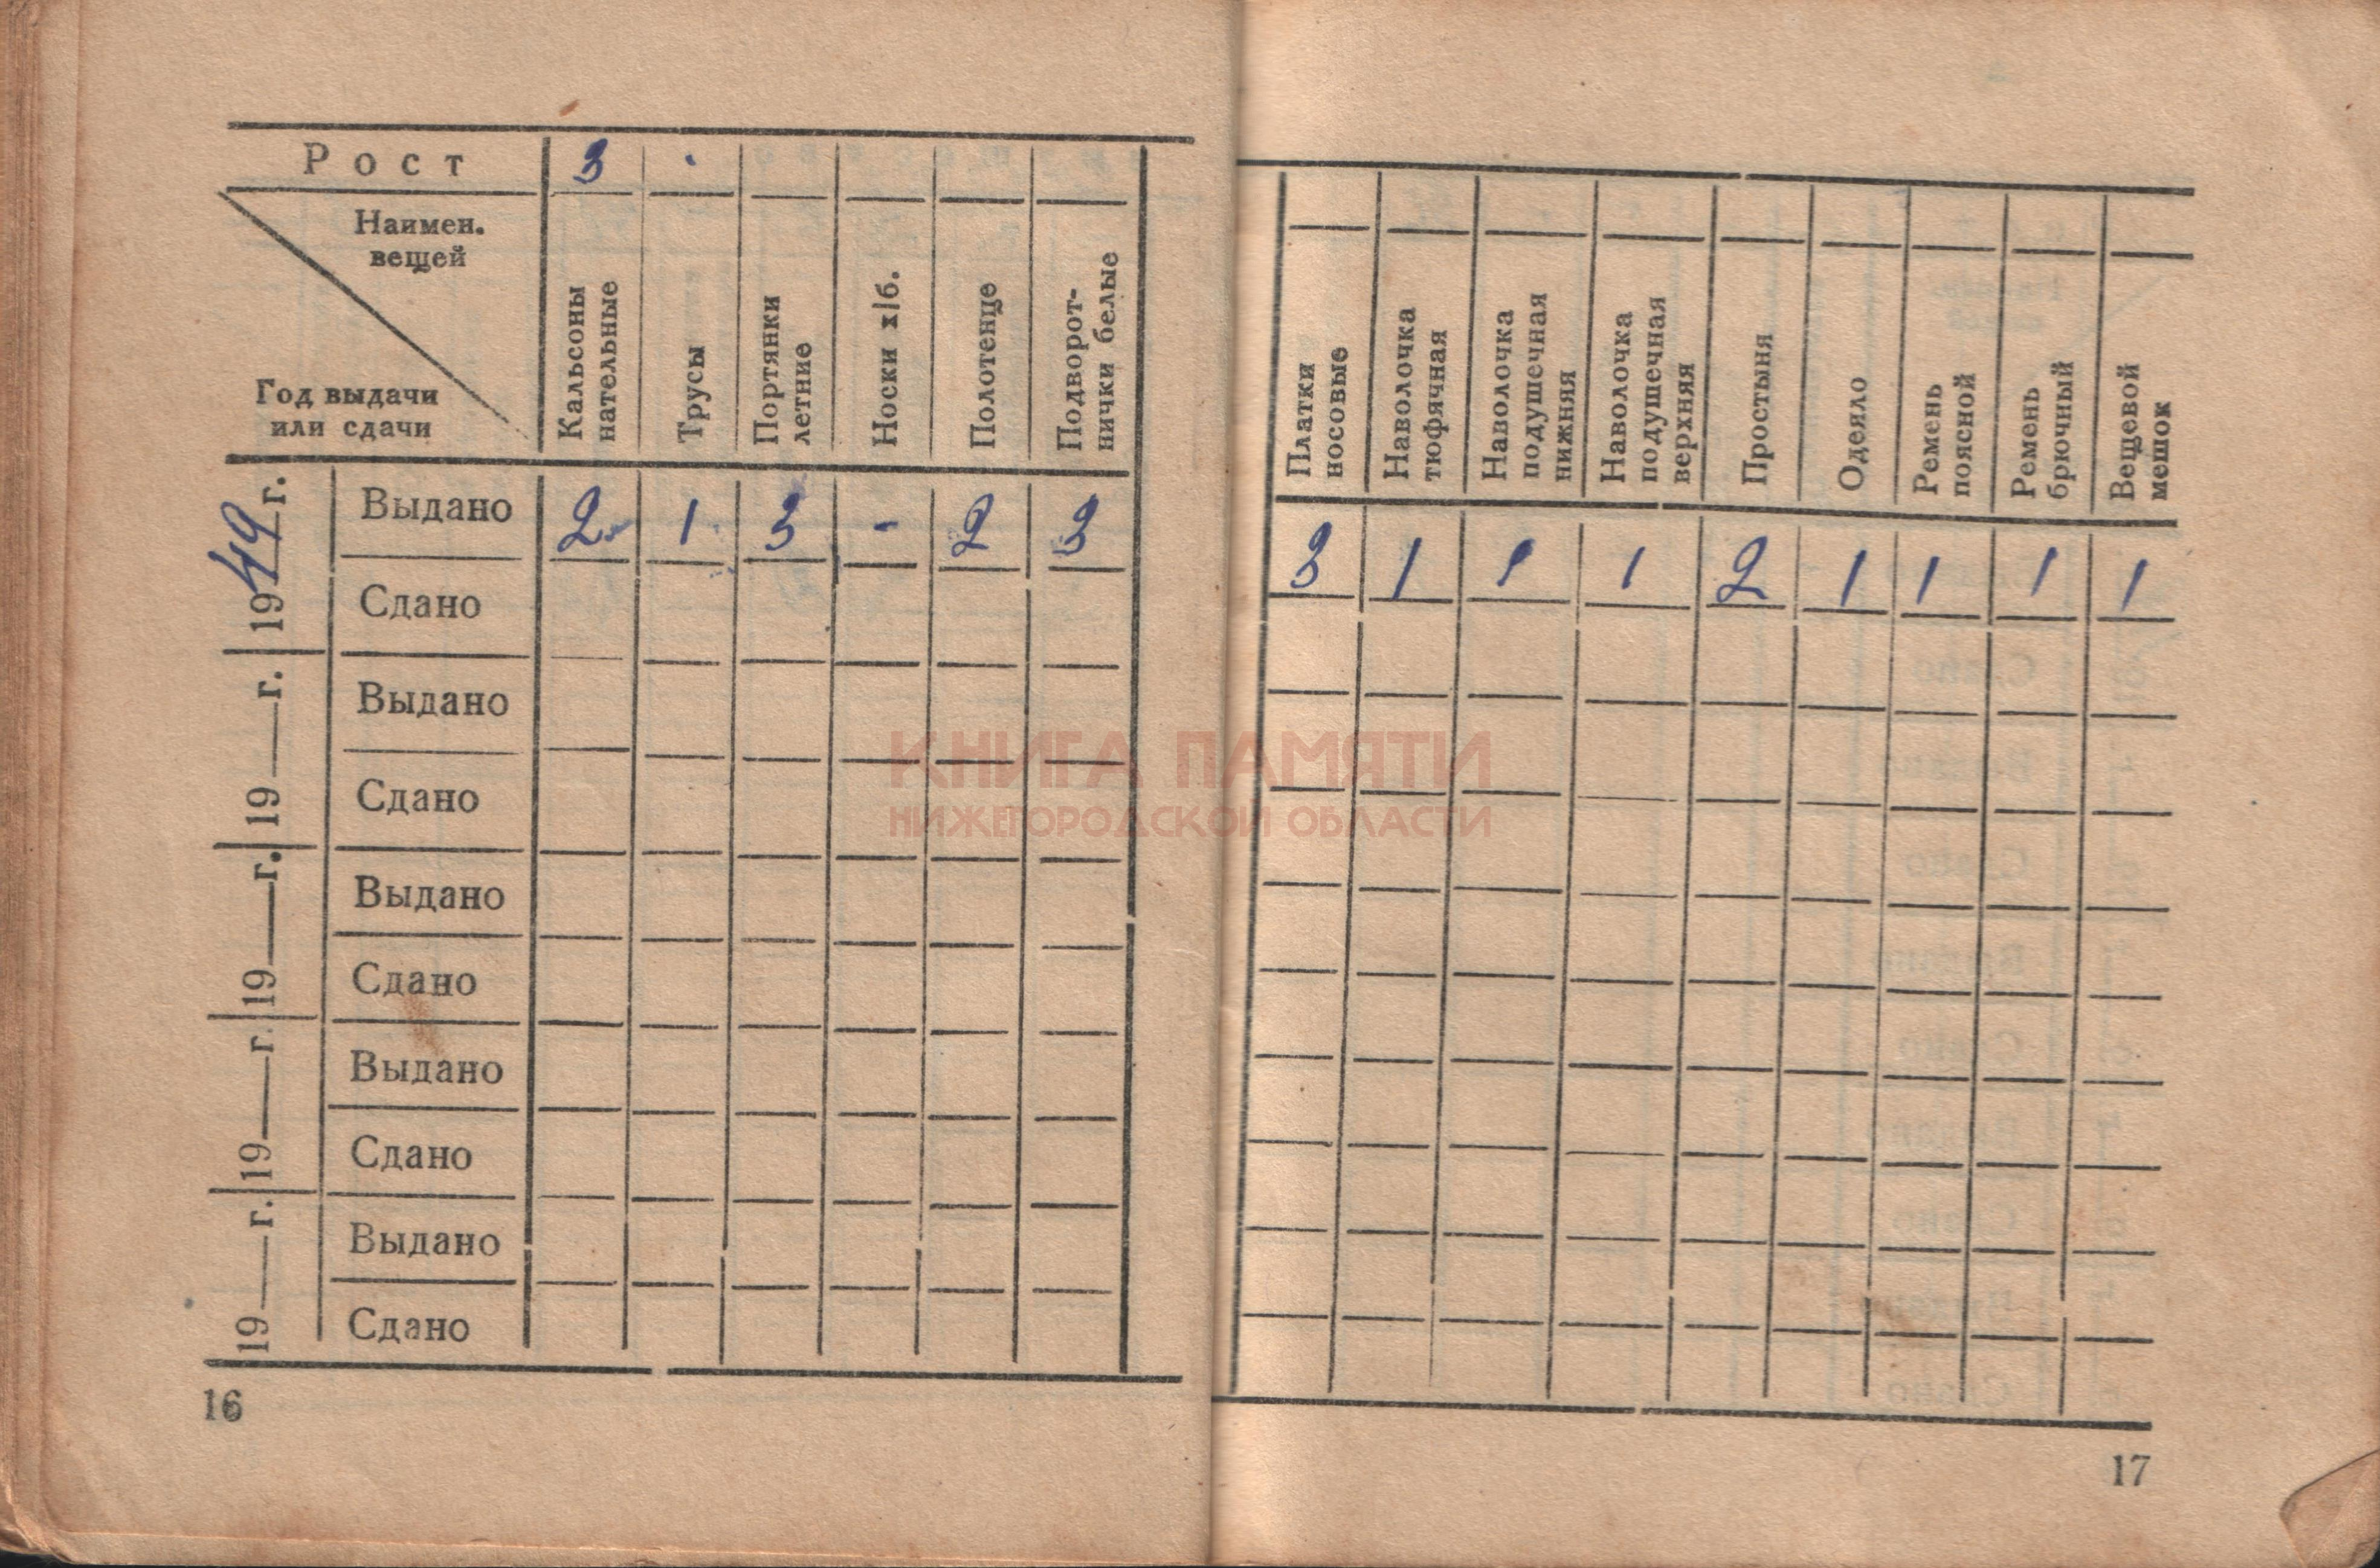 Рост 3
Наимен.
вещей
Год выдачи
или сдачи
Кальсоны
нательные
Трусы
Портянки
летние
Носки х/б.
Полотенце
Подворот-
нички белые
Платки
носовые
Наволочка
тюфячная
Наволочка
подушечная
нижняя
Наволочка
подушечная
верхняя
Простыня
Одеяло
Ремень
поясной
Ремень
брючный
Вещевой
мешок
1949 г.
Выдано 2 1 3 - 2 3 3 1 1 1 2 1 1 1 1
Сдано
19 г.
Выдано
Сдано
19 г.
Выдано
Сдано
19 г.
Выдано
Сдано
19 г.
Выдано
Сдано
КНИГА ПАМЯТИ
НИЖЕГОРОДСКОЙ ОБЛАСТИ
16
17